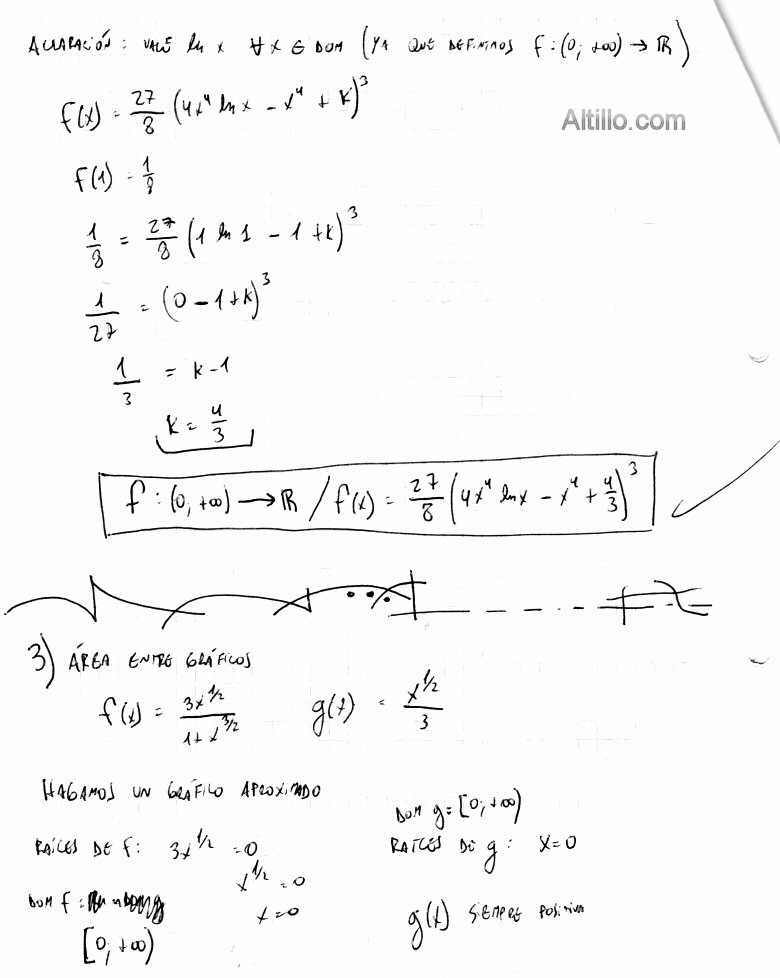 ACLARACIÓN: VALE ln x ∀x ∈ DOM (YA QUE DEFINIMOS f:(0; +∞) → ℝ)
f(x) = 27/8 (4x⁴ ln x - x⁴ + k)³
Altillo.com
f(1) = 1/8
1/8 = 27/8 (1 ln 1 - 1 + k)³
1/27 = (0 - 1 + k)³
1/3 = k - 1
k = 4/3
f : (0, +∞) → ℝ / f(x) = 27/8 (4x⁴ ln x - x⁴ + 4/3)³
3) ÁREA ENTRE GRÁFICOS
f(x) = 3x^1/2 / 1+x^3/2   g(x) = x^1/2 / 3
HAGAMOS UN GRÁFICO APROXIMADO
DOM g = [0; +∞)
RAÍCES DE f: 3x^1/2 = 0   RAÍCES DE g: x=0
x^1/2 = 0
DOM f =   x=0   g(x) SIEMPRE POSITIVA
[0; +∞)